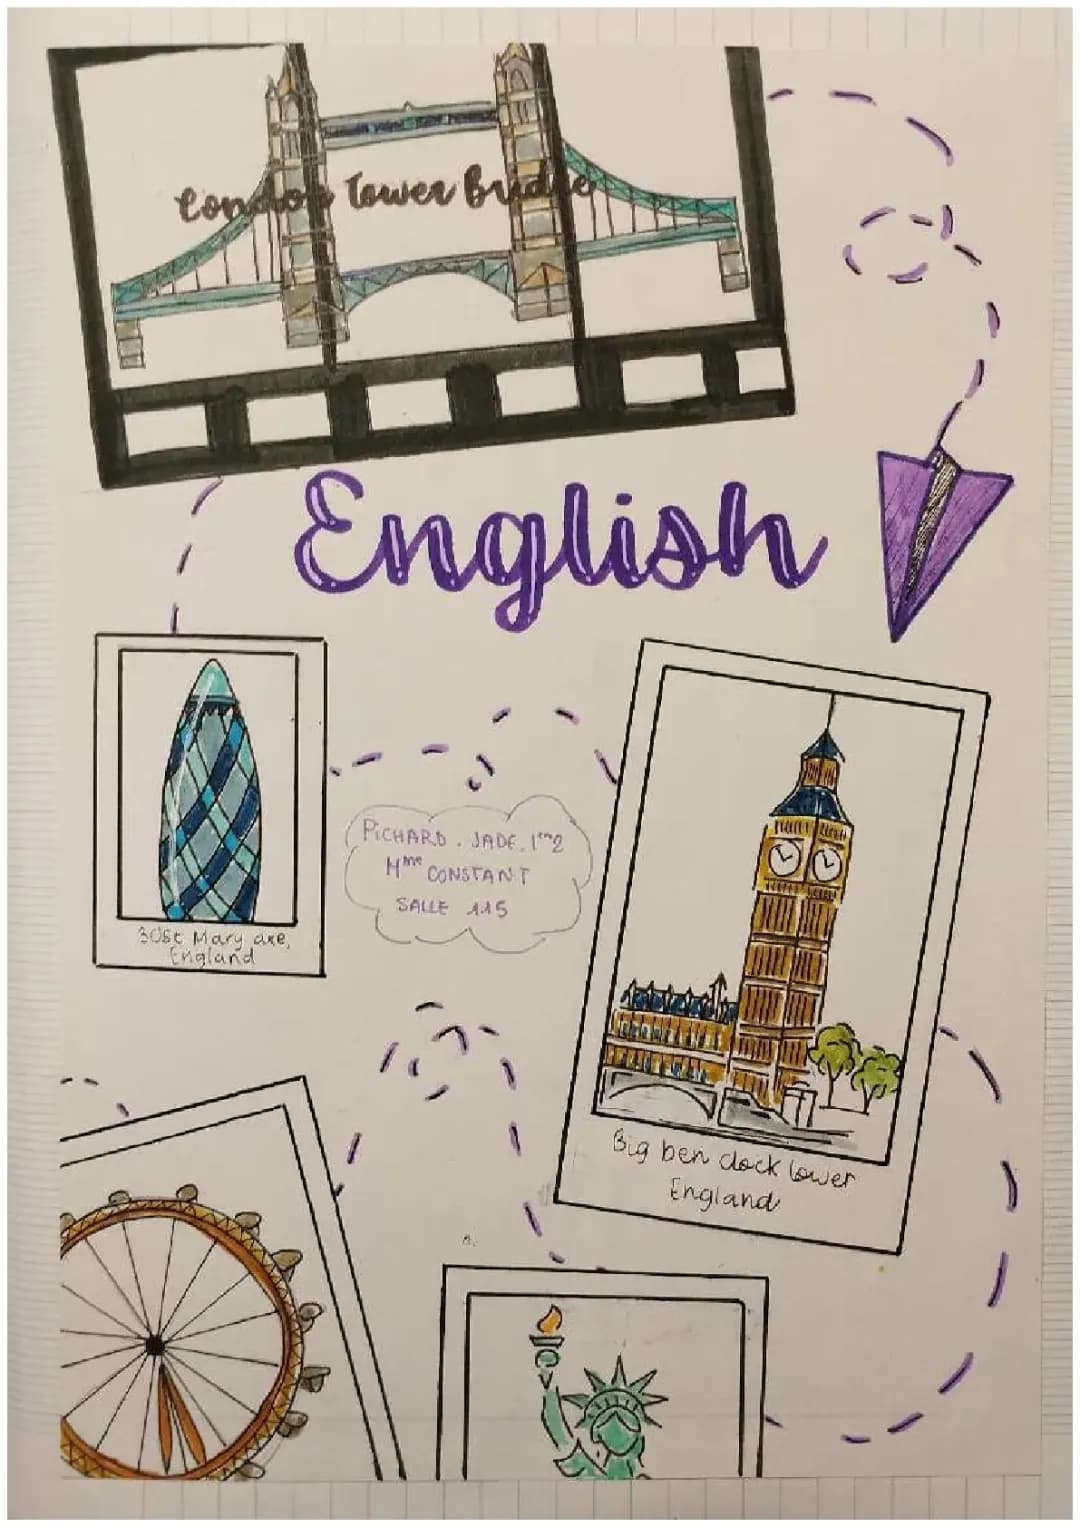 London Tower Bridge
English
PICHARD. JADE. 1ère2
Mme CONSTANT
SALLE 115
30St Mary axe,
England
Big ben clock tower
England